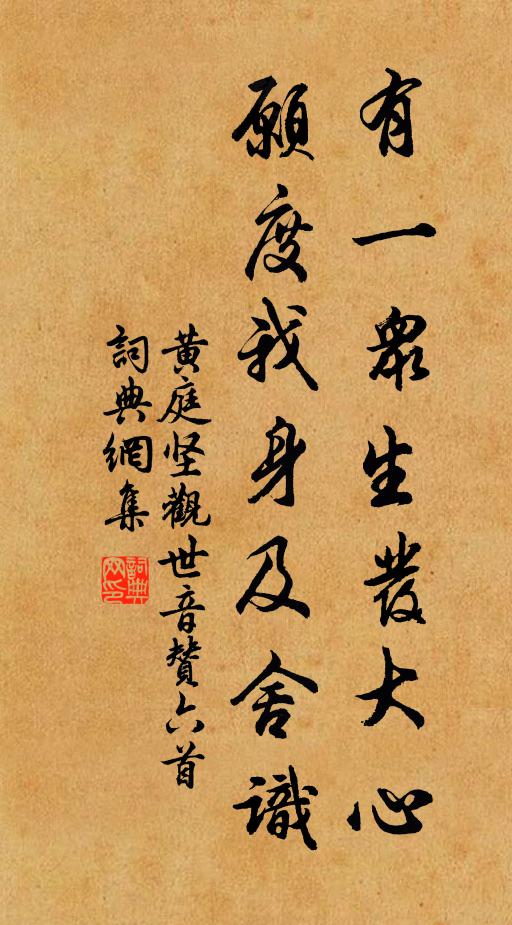 有一眾生發大心
願度我身及舍識
黄庭坚觀世音贊六首
詞典網集
詞典網印